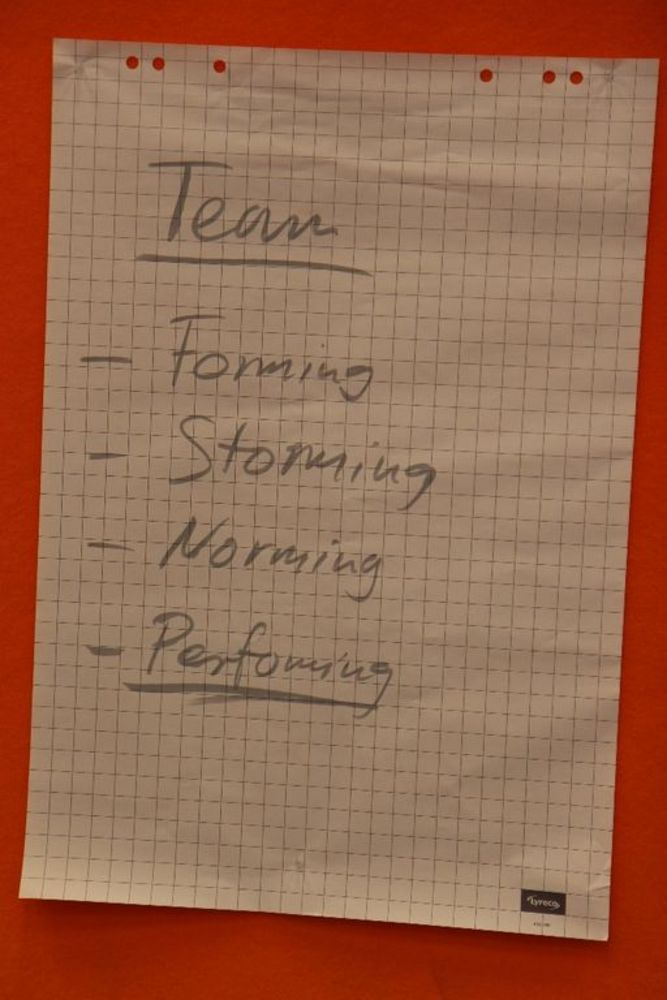 Team
- Forming
- Storming
- Norming
- Perfoming
lyreco